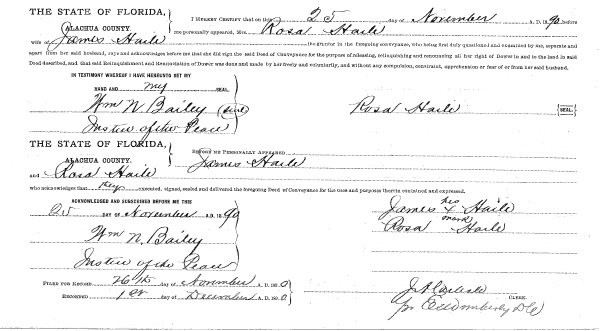 THE STATE OF FLORIDA,
ALACHUA COUNTY.
I HEREBY CERTIFY that on this 25 day of November A. D. 1890 before
me personally appeared, Mrs. Rosa Haile
wife of James Haile the grantor in the foregoing conveyance, who being first duly questioned and examined by me, separate and
apart from her said husband, says and acknowledges before me that she did sign the said Deed of Conveyance for the purpose of releasing, relinquishing and renouncing all her right of Dower in and to the land in said
Deed described, and that said Relinquishment and Renunciation of Dower was done and made by her freely and voluntarily, and without any compulsion, constraint, apprehension or fear of or from her said husband.
IN TESTIMONY WHEREOF I HAVE HEREUNTO SET MY
HAND AND my SEAL.
Wm N. Bailey (seal) Rosa Haile {SEAL.}
Justice of the Peace
THE STATE OF FLORIDA,
ALACHUA COUNTY.
BEFORE ME PERSONALLY APPEARED
James Haile
and Rosa Haile
who acknowledges that they executed, signed, sealed and delivered the foregoing Deed of Conveyance for the uses and purposes therein contained and expressed.
ACKNOWLEDGED AND SUBSCRIBED BEFORE ME THIS
25 DAY OF November A. D. 1890
James his X mark Haile
Rosa Haile
Wm N. Bailey
Justice of the Peace
FILED FOR RECORD 26th day of November A. D. 1890
RECORDED 1st day of December A. D. 1890
CLERK.